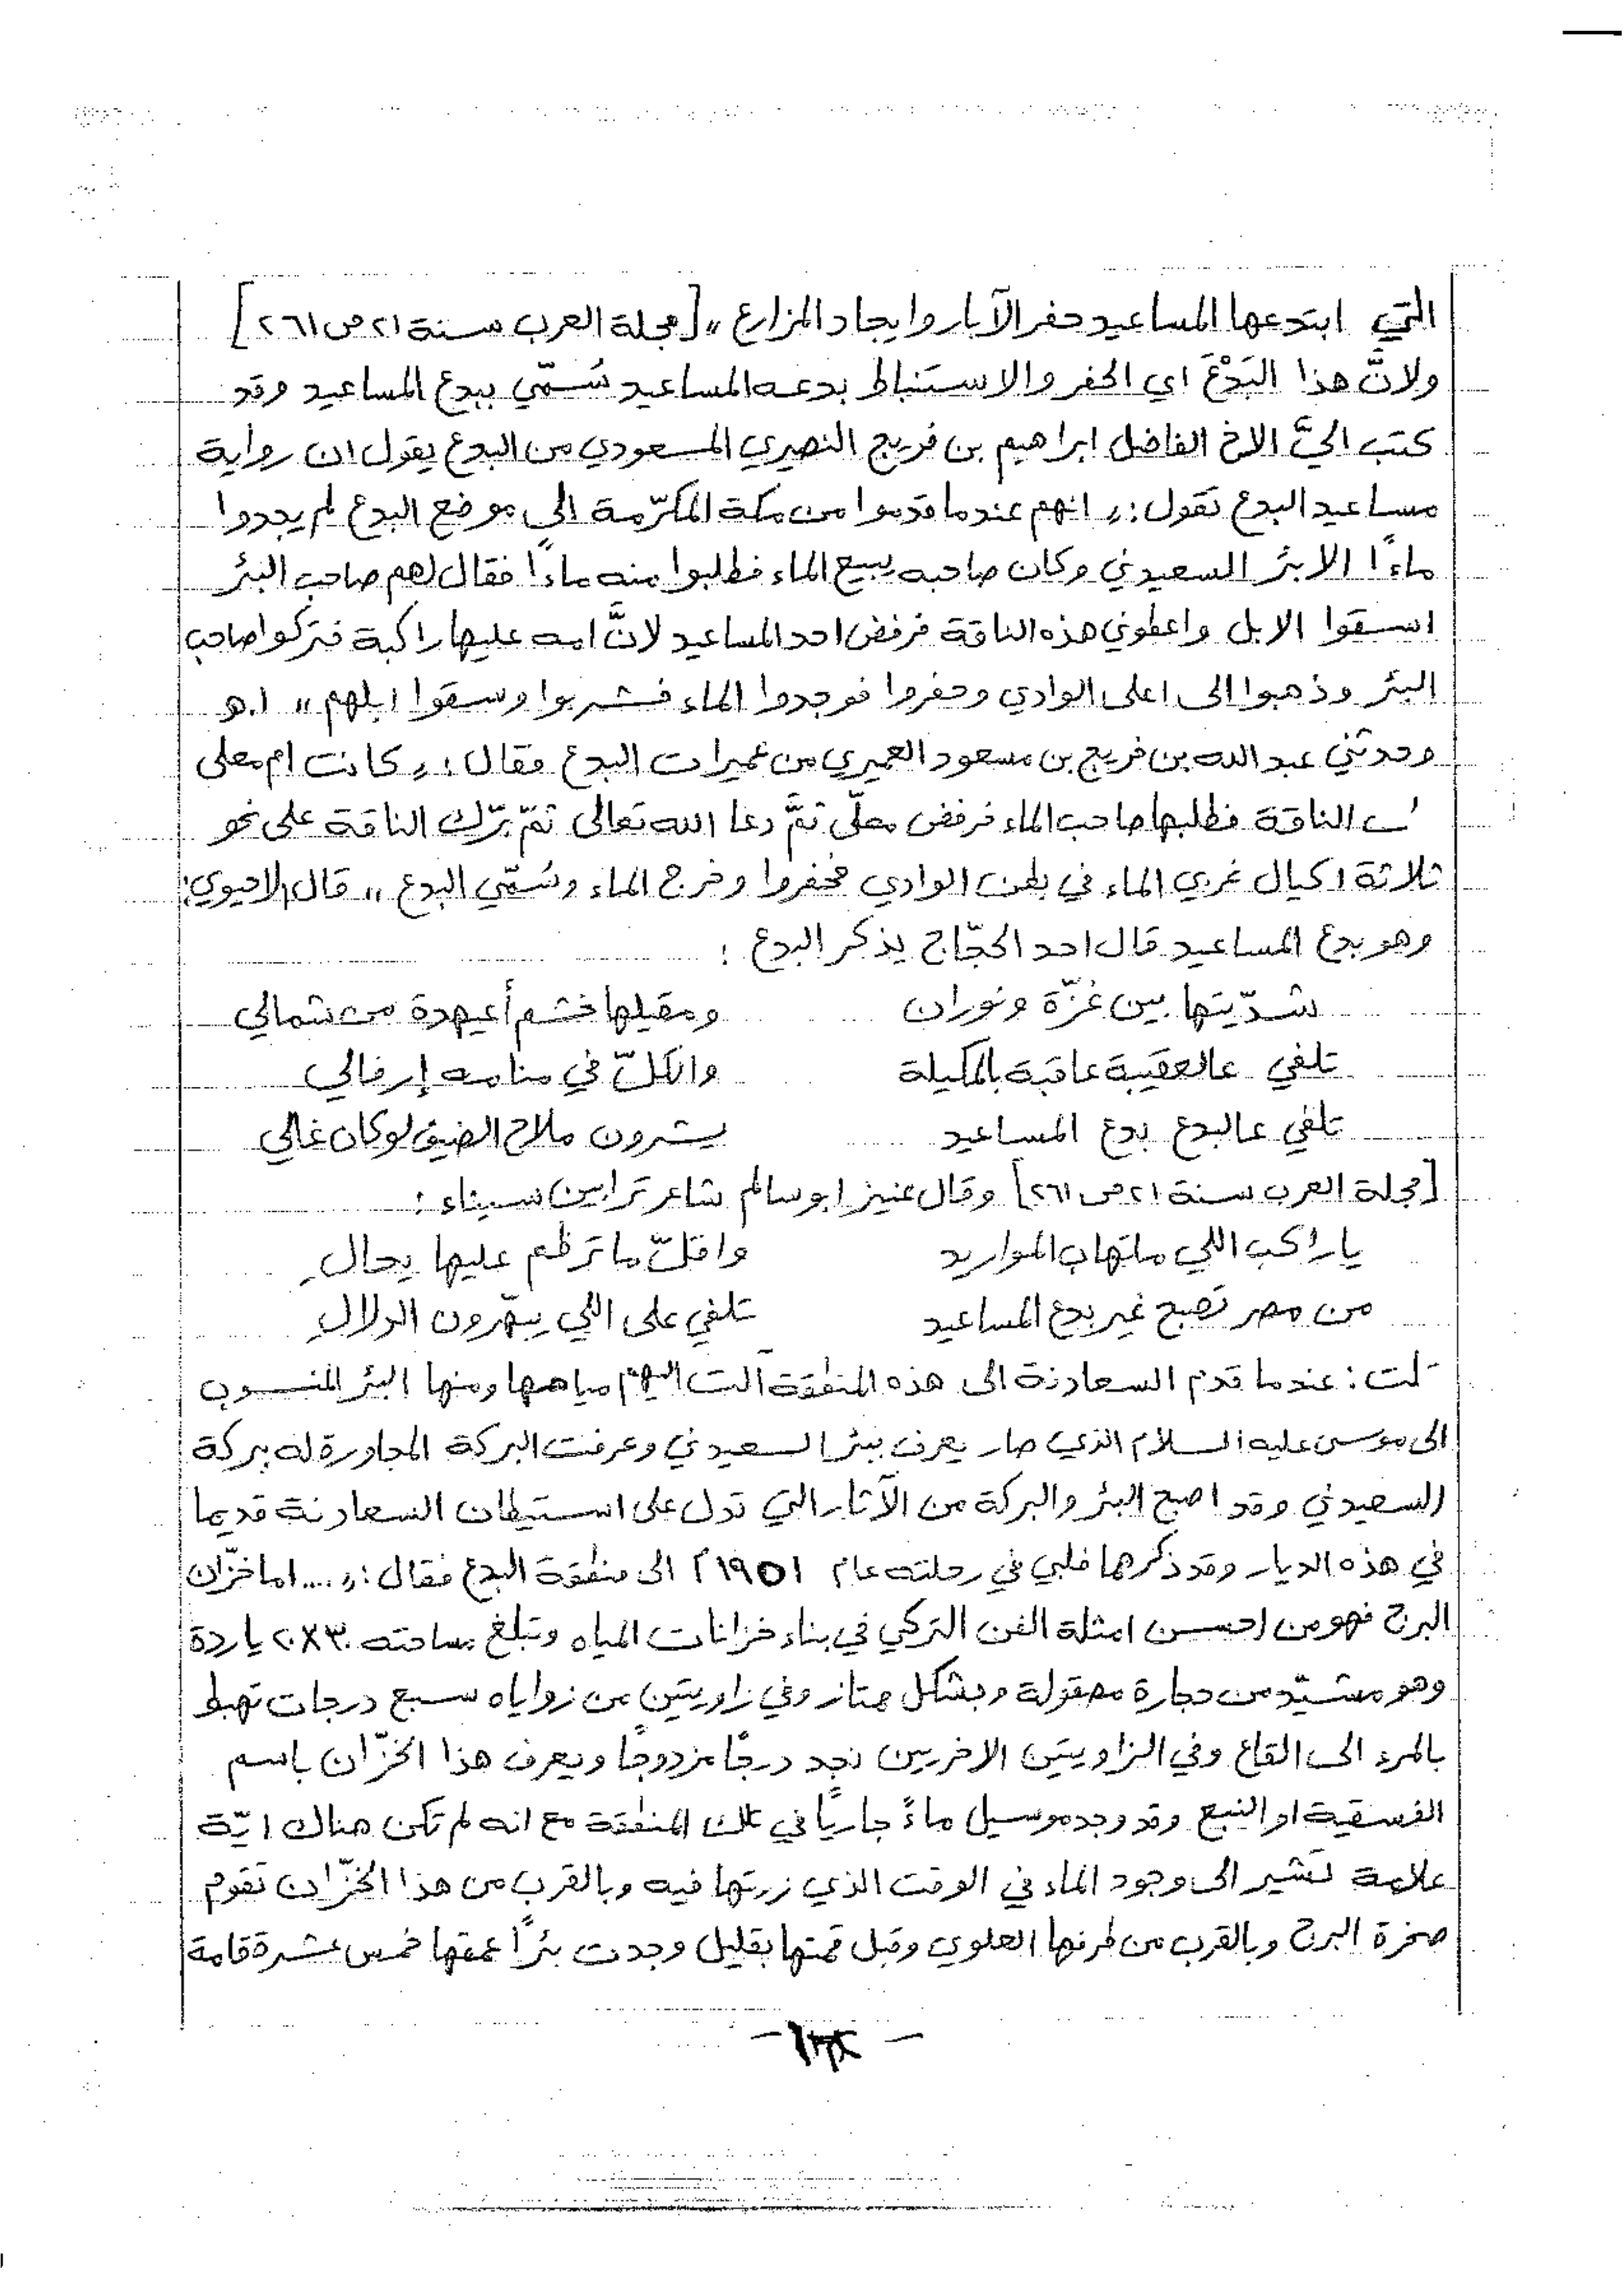 التي ابتدعها المساعيد حفر الآبار وايجاد المزارع » [مجلة العرب سنة ٢١ ص ٢٦١]
ولانَّ هذا البَدْعَ اي الحفر والاستنباط بدعه المساعيد سُمّي ببدع المساعيد وقد
كتب اليَّ الاخ الفاضل ابراهيم بن فريج النصيري المسعودي من البدع يقول ان رواية
مساعيد البدع تقول : « انهم عندما قدموا من مكة المكرّمة الى موضع البدع لم يجدوا
ماءًا الا بئر السعيدني وكان صاحبه يبيع الماء فطلبوا منه ماءًا فقال لهم صاحب البئر
اسقوا الابل واعطوني هذه الناقة فرفض احد المساعيد لانَّ امه عليها راكبة فتركوا صاحب
البئر وذهبوا الى اعلى الوادي وحفروا فوجدوا الماء فشربوا وسقوا ابلهم » ا.هـ
وحدثني عبد الله بن فريج بن مسعود العميري من عميرات البدع فقال : « كانت ام معلى
الناقة فطلبها صاحب الماء فرفض معلّى ثمَّ دعا الله تعالى ثمّ برّك الناقة على نحو
ثلاثة اكيال غربي الماء في بطن الوادي فحفروا وخرج الماء وسُمّي البدع » قال الاحيوي :
وهو بدع المساعيد قال احد الحجّاج يذكر البدع :
شدّيتها بين غزّة ونوران ومقيلها خشم أعيهدة من شمالي
تلفي عالعقيبة عاقبة بالمكيلة والكلّ في منامه إرفالي
تلفي عالبدع بدع المساعيد يشرون ملاح الضيف لو كان غالي
[مجلة العرب سنة ٢١ ص ٢٦١] وقال عنيز ابو سالم شاعر ترابين سيناء :
يا راكب اللي ملتهاب المواريد واقلّ ما تزظم عليها يحالِ
من مصر تصبح غير بدع المساعيد تلفي على اللي يبهّرون الدلالِ
قلت : عندما قدم السعادنة الى هذه المنطقة آلت اليهم مياهها ومنها البئر المنسوب
الى موسى عليه السلام الذي صار يعرف ببئر السعيدني وعرفت البركة المجاورة له ببركة
السعيدني وقد اصبح البئر والبركة من الآثار التي تدل على استيطان السعادنة قديما
في هذه الديار وقد ذكرها فلبي في رحلته عام ١٩٥١ م الى منطقة البدع فقال : « .... اما خزّان
البرج فهو من احسن امثلة الفن التركي في بناء خزانات المياه وتبلغ مساحته ٣٠×٢٠ ياردة
وهو مشيّد من حجارة مصقولة وبشكل ممتاز وفي زاويتين من زواياه سبع درجات تهبط
بالمرء الى القاع وفي الزاويتين الاخريين نجد درجًا مزدوجًا ويعرف هذا الخزّان باسم
الفسقية او النبع وقد وجد موسيل ماءً جاريًا في تلك المنطقة مع انه لم تكن هناك ايّة
علامة تشير الى وجود الماء في الوقت الذي زرتها فيه وبالقرب من هذا الخزّان تقوم
صخرة البرج وبالقرب من طرفها العلوي وقبل قمتها بقليل وجدت بئرًا عمقها خمس عشرة قامة